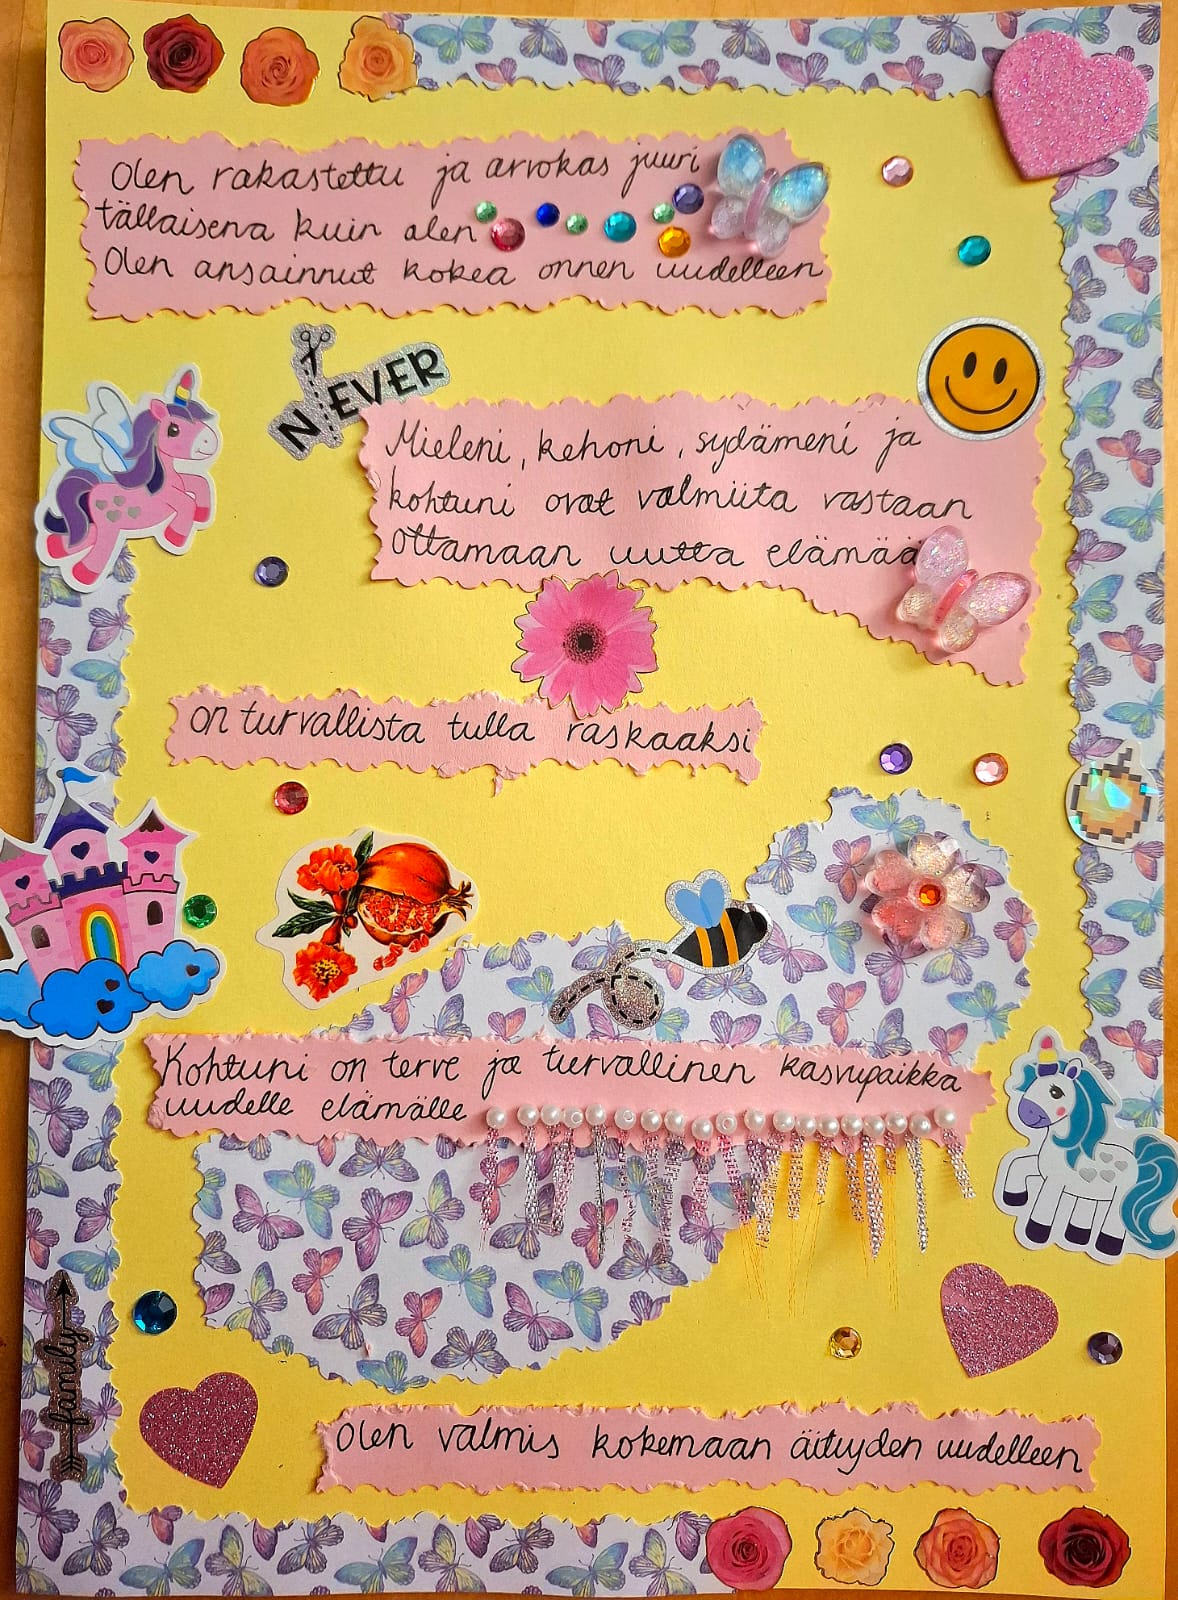 Olen rakastettu ja arvokas juuri
tällaisena kuin olen
Olen ansainnut kokea onnen uudelleen
NEVER
Mieleni, kehoni, sydämeni ja
kohtuni ovat valmiita vastaan
ottamaan uutta elämää
on turvallista tulla raskaaksi
Kohtuni on terve ja turvallinen kasvupaikka
uudelle elämälle
family
Olen valmis kokemaan äitiyden uudelleen